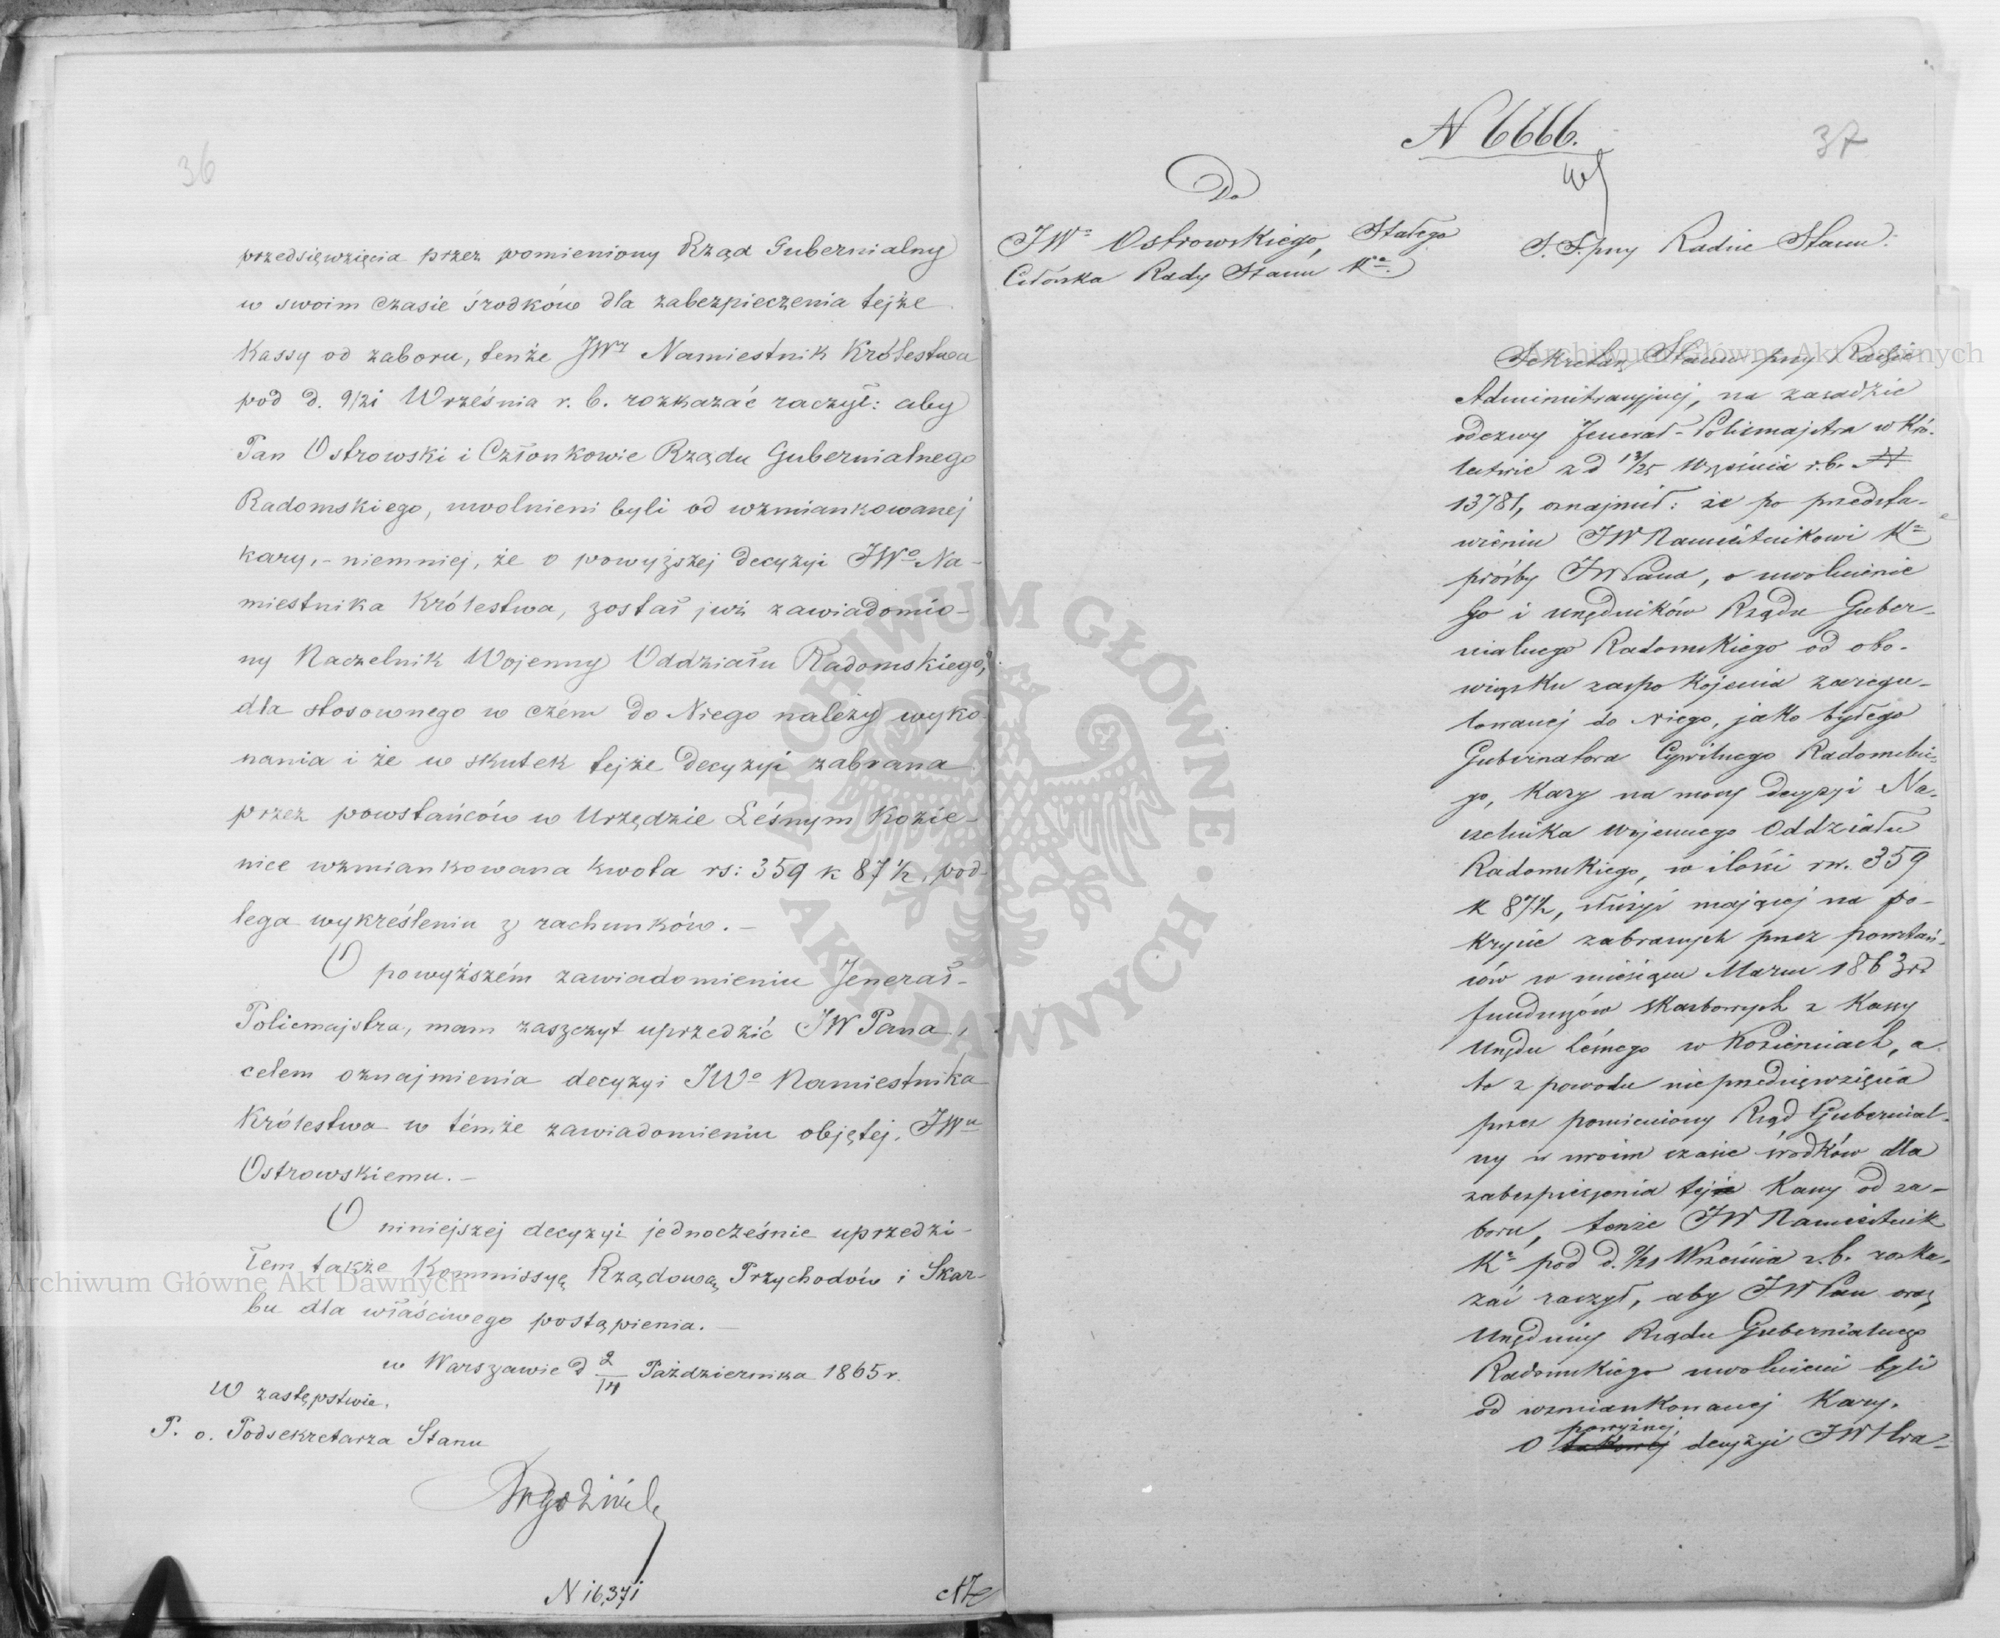 36
przedsięwzięcia przez pomieniony Rząd Gubernialny
w swoim czasie środków dla zabezpieczenia tejże
Kassy od zaboru, tenże JWy Namiestnik Królestwa
pod d. 9/21 Września r. b. rozkazać raczył: aby
Pan Ostrowski i Członkowie Rządu Gubernialnego
Radomskiego, uwolnieni byli od wzmiankowanej
kary, - niemniej, że o powyższej decyzyi JWo Na-
miestnika Królestwa, został już zawiadomio-
ny Naczelnik Wojenny Oddziału Radomskiego,
dla stosownego w czém do Niego należy wyko
nania i że w skutek tejże decyzyi zabrana
przez powstańców w Urzędzie Leśnym Kozie-
nice wzmiankowana kwota rs: 359 k 87½, pod-
lega wykreśleniu z rachunków. -
O powyższém zawiadomieniu Jenerał-
Policmajstra, mam zaszczyt uprzedzić JW Pana,
celem oznajmienia decyzyi JWo Namiestnika
Królestwa w témże zawiadomieniu objętej, JWu
Ostrowskiemu. -
O niniejszej decyzyi jednocześnie uprzedzi-
łem także Kommissyę Rządową Przychodów i Skar-
bu dla właściwego postąpienia. -
w Warszawie d 2/14 Października 1865 r.
W zastępstwie,
P. o. Podsekretarza Stanu
N 16,371
37
N 6666.
Do
JWo Ostrowskiego, Stałego
Członka Rady Stanu Ka
S. S. przy Radzie Stanu:
Sekretarz Stanu przy Radzie
Administracyjnej, na zasadzie
odezwy Jenerał-Policmajstra w Kró-
lestwie z d 13/25 Września r. b. N
13781, oznajmił: że po przedsta-
wieniu JW Namiestnikowi Ka
prośby JWPana, o uwolnienie
Go i urzędników Rządu Guber-
nialnego Radomskiego od obo-
wiązku zaspokojenia zaregu-
lowanej do Niego, jako byłego
Gubernatora Cywilnego Radomskie-
go, Kary na mocy decyzji Na-
czelnika Wojennego Oddziału
Radomskiego, w ilości rs. 359
k 87½, służyć mającej na po-
krycie zabranych przez powstań-
ców w miesiącu Marcu 1863 r
funduszów skarbowych z Kassy
Urzędu Leśnego w Kozienicach, a
to z powodu nieprzedsięwzięcia
przez pomieniony Rząd Gubernial-
ny w swoim czasie środków dla
zabezpieczenia tejże Kassy od za-
boru, tenże JW Namiestnik
Ka pod d. 9/21 Września r. b. rozka-
zać raczył, aby JW Pan oraz
Urzędnicy Rządu Gubernialnego
Radomskiego uwolnieni byli
od wzmiankowanej Kary.
powyższej,
O takowej decyzyi JW Hra-
Archiwum Główne Akt Dawnych
Archiwum Główne Akt Dawnych
ARCHIWUM GŁÓWNE AKT DAWNYCH